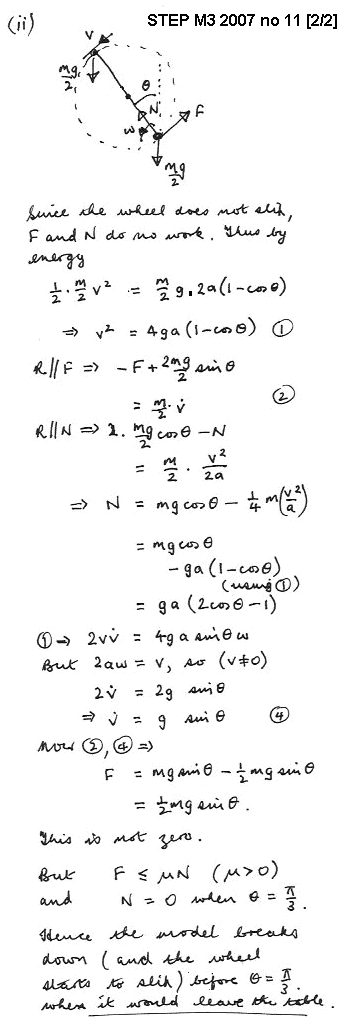 STEP M3 2007 no 11 [2/2]
(ii)
V
mg/2
θ
N
F
w
mg/2
Since the wheel does not slip,
F and N do no work. Thus by
energy
1/2 · m/2 v² = m/2 g · 2a(1-cosθ)
⇒ v² = 4ga(1-cosθ) ①
R//F ⇒ -F + 2mg/2 sinθ
= m/2 · v̇ ②
R//N ⇒ 2 · mg/2 cosθ - N
= m/2 · v²/2a
⇒ N = mg cosθ - 1/4 m(v²/a)
= mg cosθ
- ga(1-cosθ)
(using ①)
= ga(2cosθ-1)
① ⇒ 2vv̇ = 4ga sinθ w
But 2aw = v, so (v≠0)
2v̇ = 2g sinθ
⇒ v̇ = g sinθ ④
Now ②, ④ ⇒
F = mg sinθ - 1/2 mg sinθ
= 1/2 mg sinθ.
This is not zero.
But F ≤ μN (μ>0)
and N = 0 when θ = π/3.
Hence the model breaks
down (and the wheel
starts to slip) before θ = π/3.
when it would leave the table.